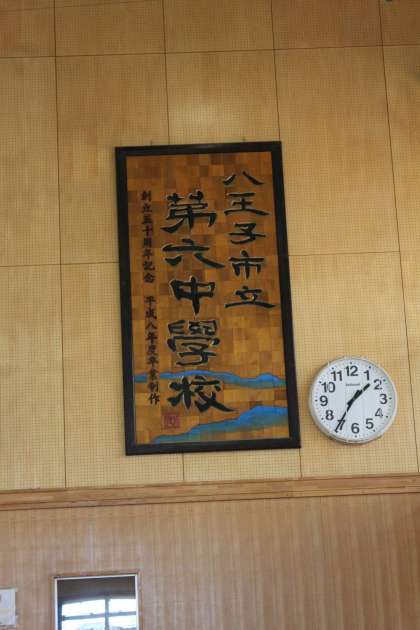 八王子市立
第六中學校
創立五十周年記念 平成八年度卒業制作
12
1
2
3
4
5
6
7
8
9
10
11